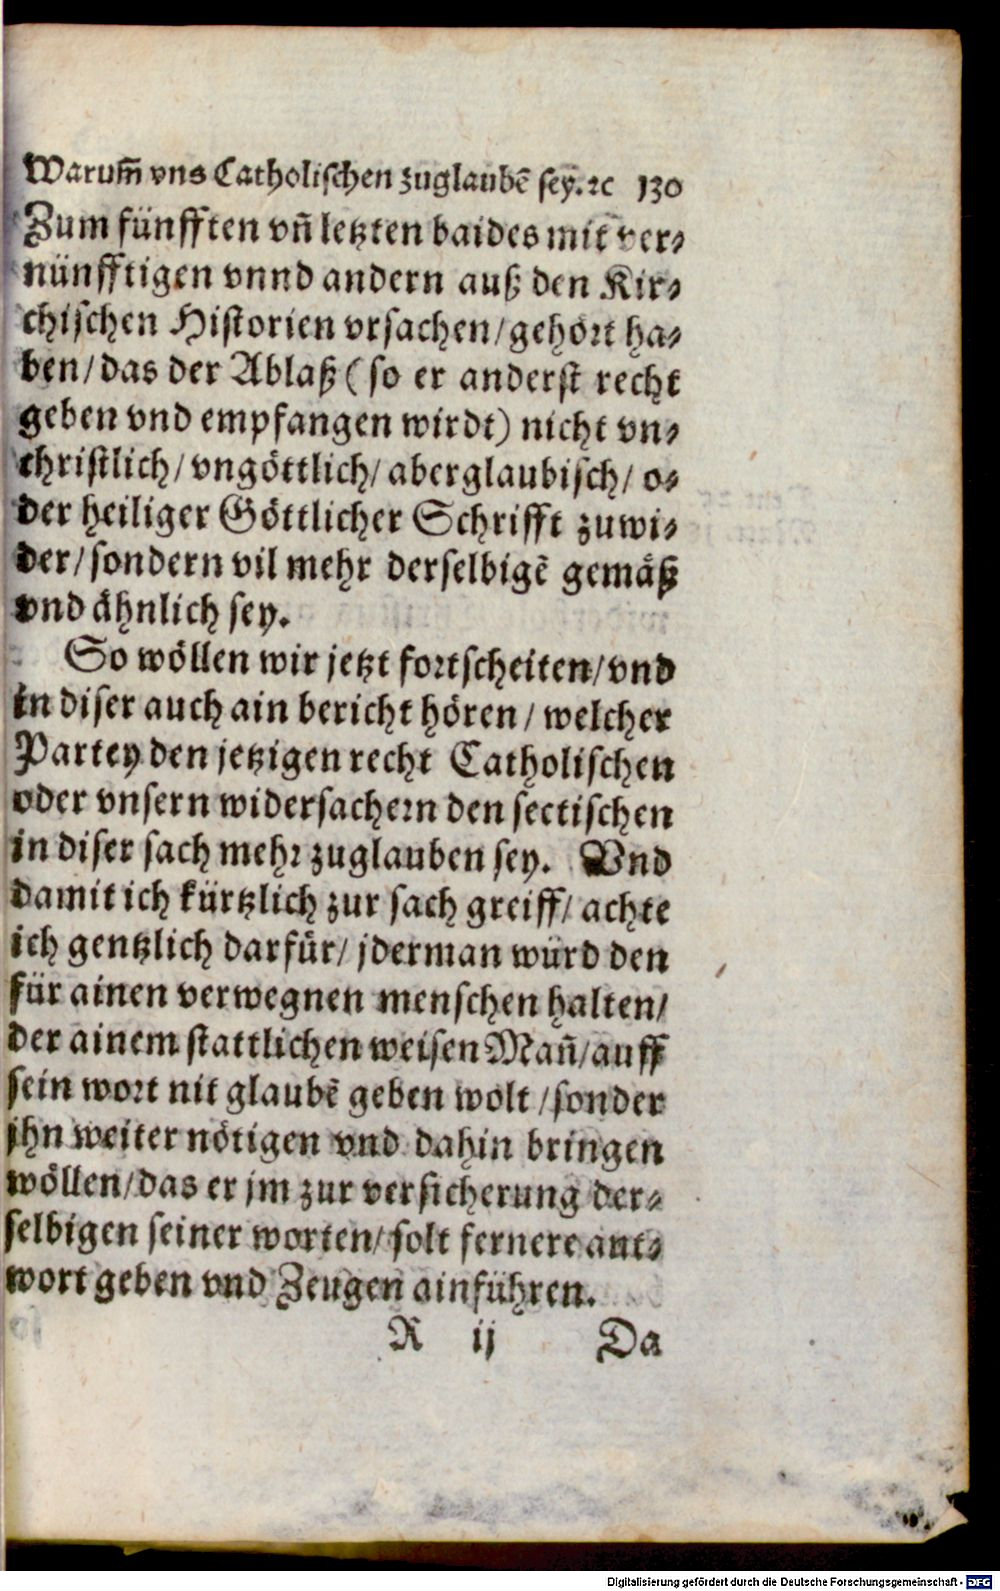 Warum̃ vns Catholischen zuglaubẽ sey. ꝛc 130
Zum fünfften vñ letzten baides mit ver⸗
nünfftigen vnnd andern auß den Kir⸗
chischen Historien vrsachen/gehört ha⸗
ben/das der Ablaß (so er anderst recht
geben vnd empfangen wirdt) nicht vn⸗
christlich/ vngöttlich/ aberglaubisch/ o⸗
der heiliger Göttlicher Schrifft zuwi⸗
der/sondern vil mehr derselbigẽ gemäß
vnd ähnlich sey.
So wöllen wir jetzt fortscheiten/vnd
in diser auch ain bericht hören/ welcher
Partey den jetzigen recht Catholischen
oder vnsern widersachern den sectischen
in diser sach mehr zuglauben sey. Vnd
damit ich kürtzlich zur sach greiff/ achte
ich gentzlich darfür/ jderman würd den
für ainen verwegnen menschen halten/
der ainem stattlichen weisen Mañ/auff
sein wort nit glaubẽ geben wolt/sonder
jhn weiter nötigen vnd dahin bringen
wöllen/das er jm zur versicherung der⸗
selbigen seiner worten/ solt fernere ant⸗
wort geben vnd Zeugen ainführen.
R ij Da
Digitalisierung gefördert durch die Deutsche Forschungsgemeinschaft - DFG